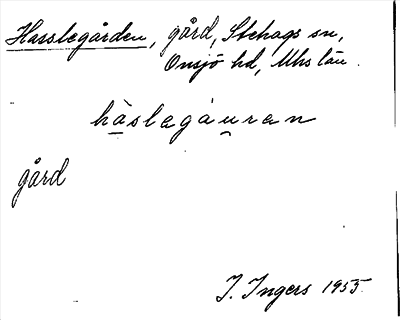 Hasslegården, gård, Stehags sn,
Onsjö hd, Mhs län.
hàslegáu̯ran
gård
I. Ingers 1955.